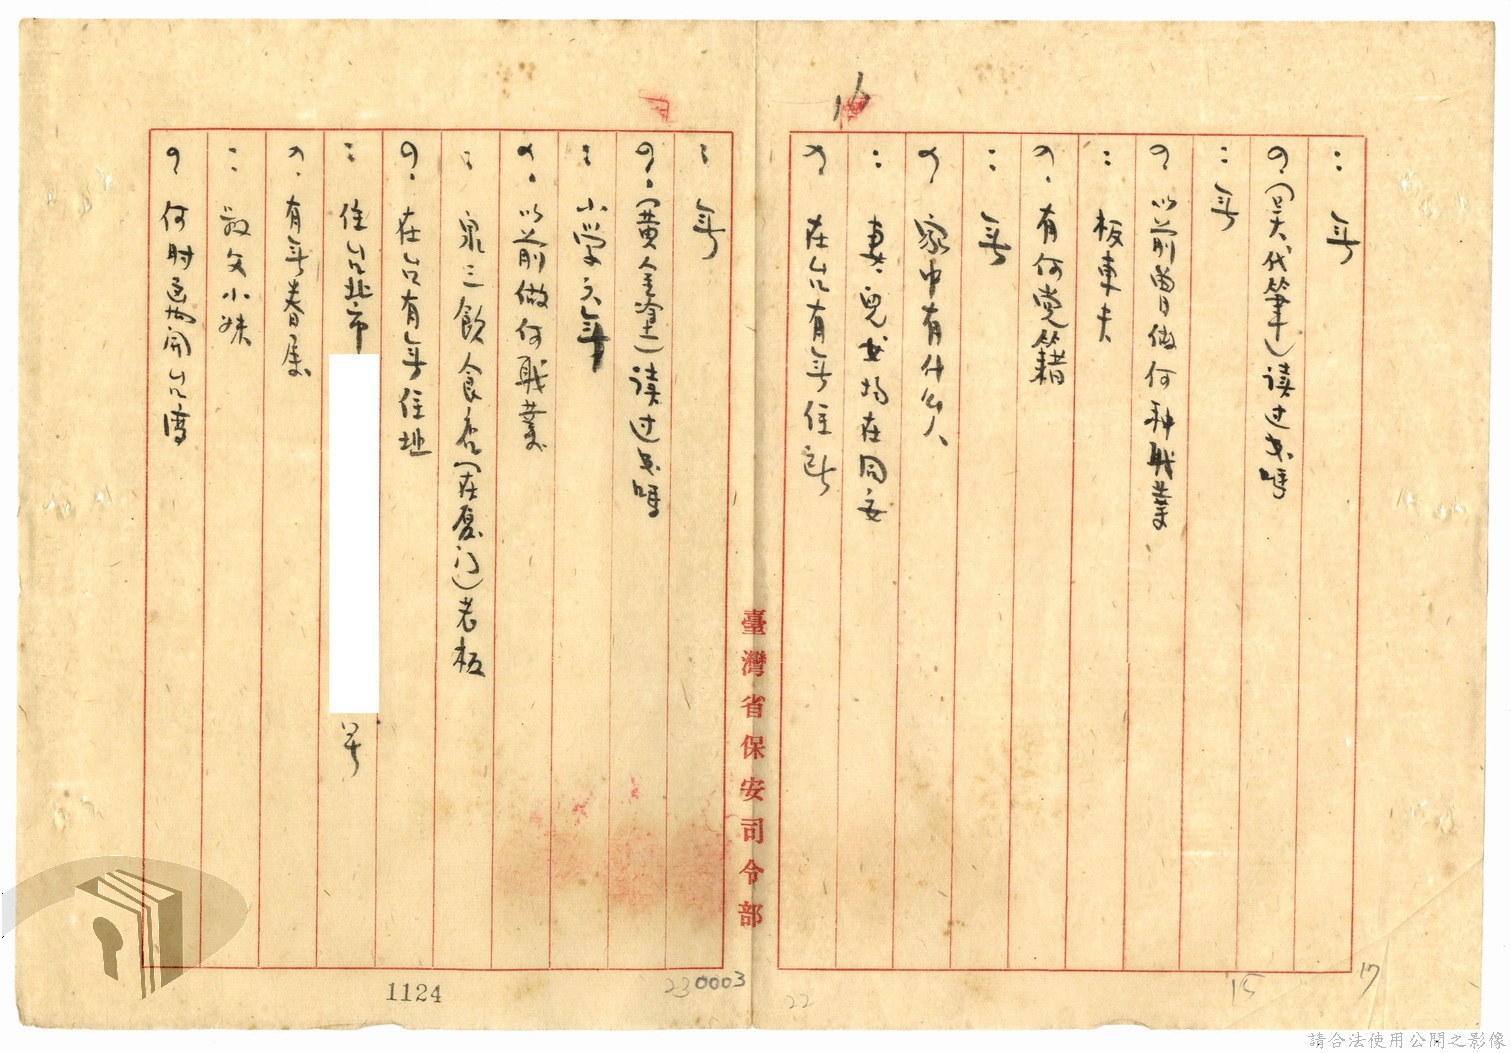 : 无
?. (吴代筆) 读过书嗎
: 无
? 以前曾做何种职業
: 板車夫
?. 有何党籍
: 无
? 家中有什么人
: 妻. 兒女均在同安
? 在台有无住所
: 无
?. (黄金塗) 读过书嗎
: 小学六年
?. 以前做何职業
: 泉三飲食店(在厦门)老板
?. 在台有无住址
: 住台北市
号
?. 有无眷属
: 小妹
? 何时离開台湾
臺灣省保安司令部
16
1124
23
0003
22
15
17
請合法使用公開之影像